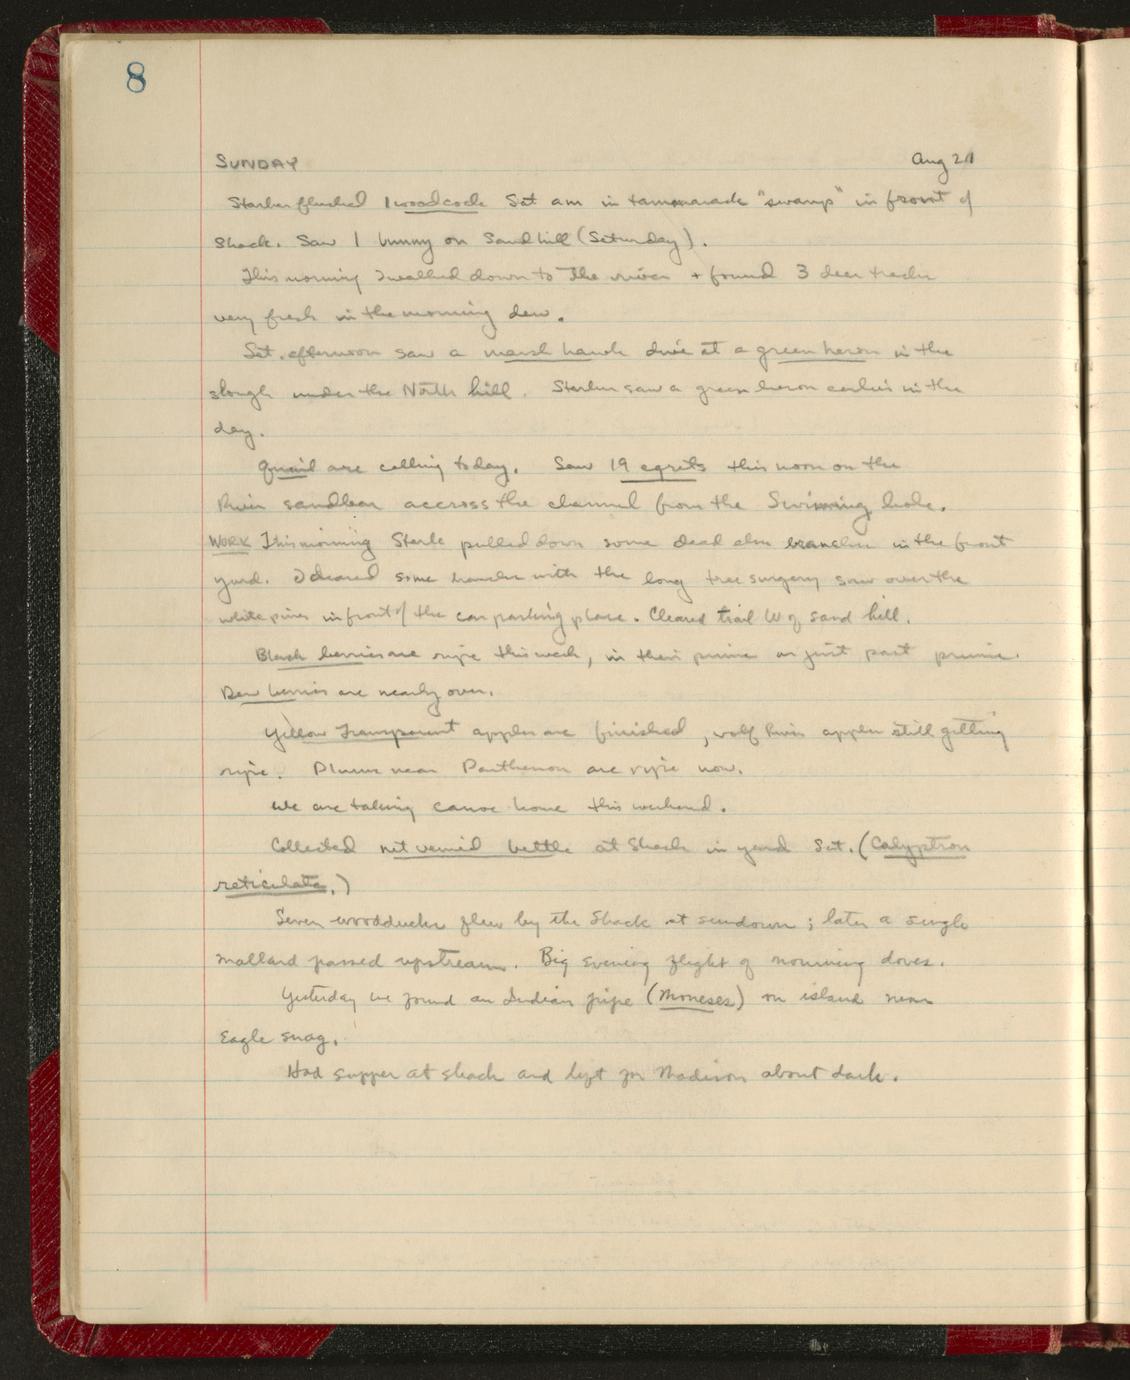 8
SUNDAY Aug 21
Starker flushed 1 woodcock Sat am in tammarack "swamp" in front of
Shack. Saw 1 bunny on Sandhill (Saturday).
This morning I walked down to the river + found 3 deer tracks
very fresh in the morning dew.
Sat. afternoon saw a marsh hawk dive at a green heron in the
slough under the North hill. Starker saw a green heron earlier in the
day.
Quail are calling today. Saw 19 egrets this noon on the
River sandbar accross the channel from the Swimming hole.
WORK This morning Stark pulled down some dead elm branches in the front
yard. I cleared some branches with the long tree surgery saw over the
white pines in front of the car parking place. Cleared trail W of sand hill.
Black berries are ripe this week, in their prime or just past prime.
Dew berries are nearly over.
Yellow Transparent apples are finished, wolf River apples still getting
ripe. Plums near Parthenon are ripe now.
We are taking canoe home this weekend.
Collected net veined bettle at Shack in yard Sat. (Calyptron
reticulata.)
Seven woodducks flew by the Shack at sundown; later a single
mallard passed upstream. Big evening flight of mourning doves.
Yesterday we found an Indian pipe (Moneses) on island near
Eagle snag.
Had supper at shack and left for Madison about dark.